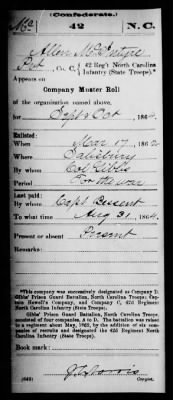 (Confederate.)
Mc 42 N.C.
Allen McIntyre
Pvt, Co. C, 42 Reg't North Carolina
Infantry (State Troops).*
Appears on
Company Muster Roll
of the organization named above,
for Sept & Oct, 1864.
Enlisted:
When Mar 17, 1862
Where Salisbury
By whom Col Gibbs
Period For the war
Last paid:
By whom Capt Bessent
To what time Aug 31, 1864.
Present or absent Present
Remarks:
*This company was successively designated as Company D,
Gibbs' Prison Guard Battalion, North Carolina Troops; Captain
Howell's Company, and Company C, 42d Regiment
North Carolina Infantry (State Troops).
Gibbs' Prison Guard Battalion, North Carolina Troops,
consisted of four companies, A to D. The battalion was raised
to a regiment about May, 1862, by the addition of six companies
of recruits and designated the 42d Regiment North
Carolina Infantry (State Troops).
Book mark:
(642)
Copyist.